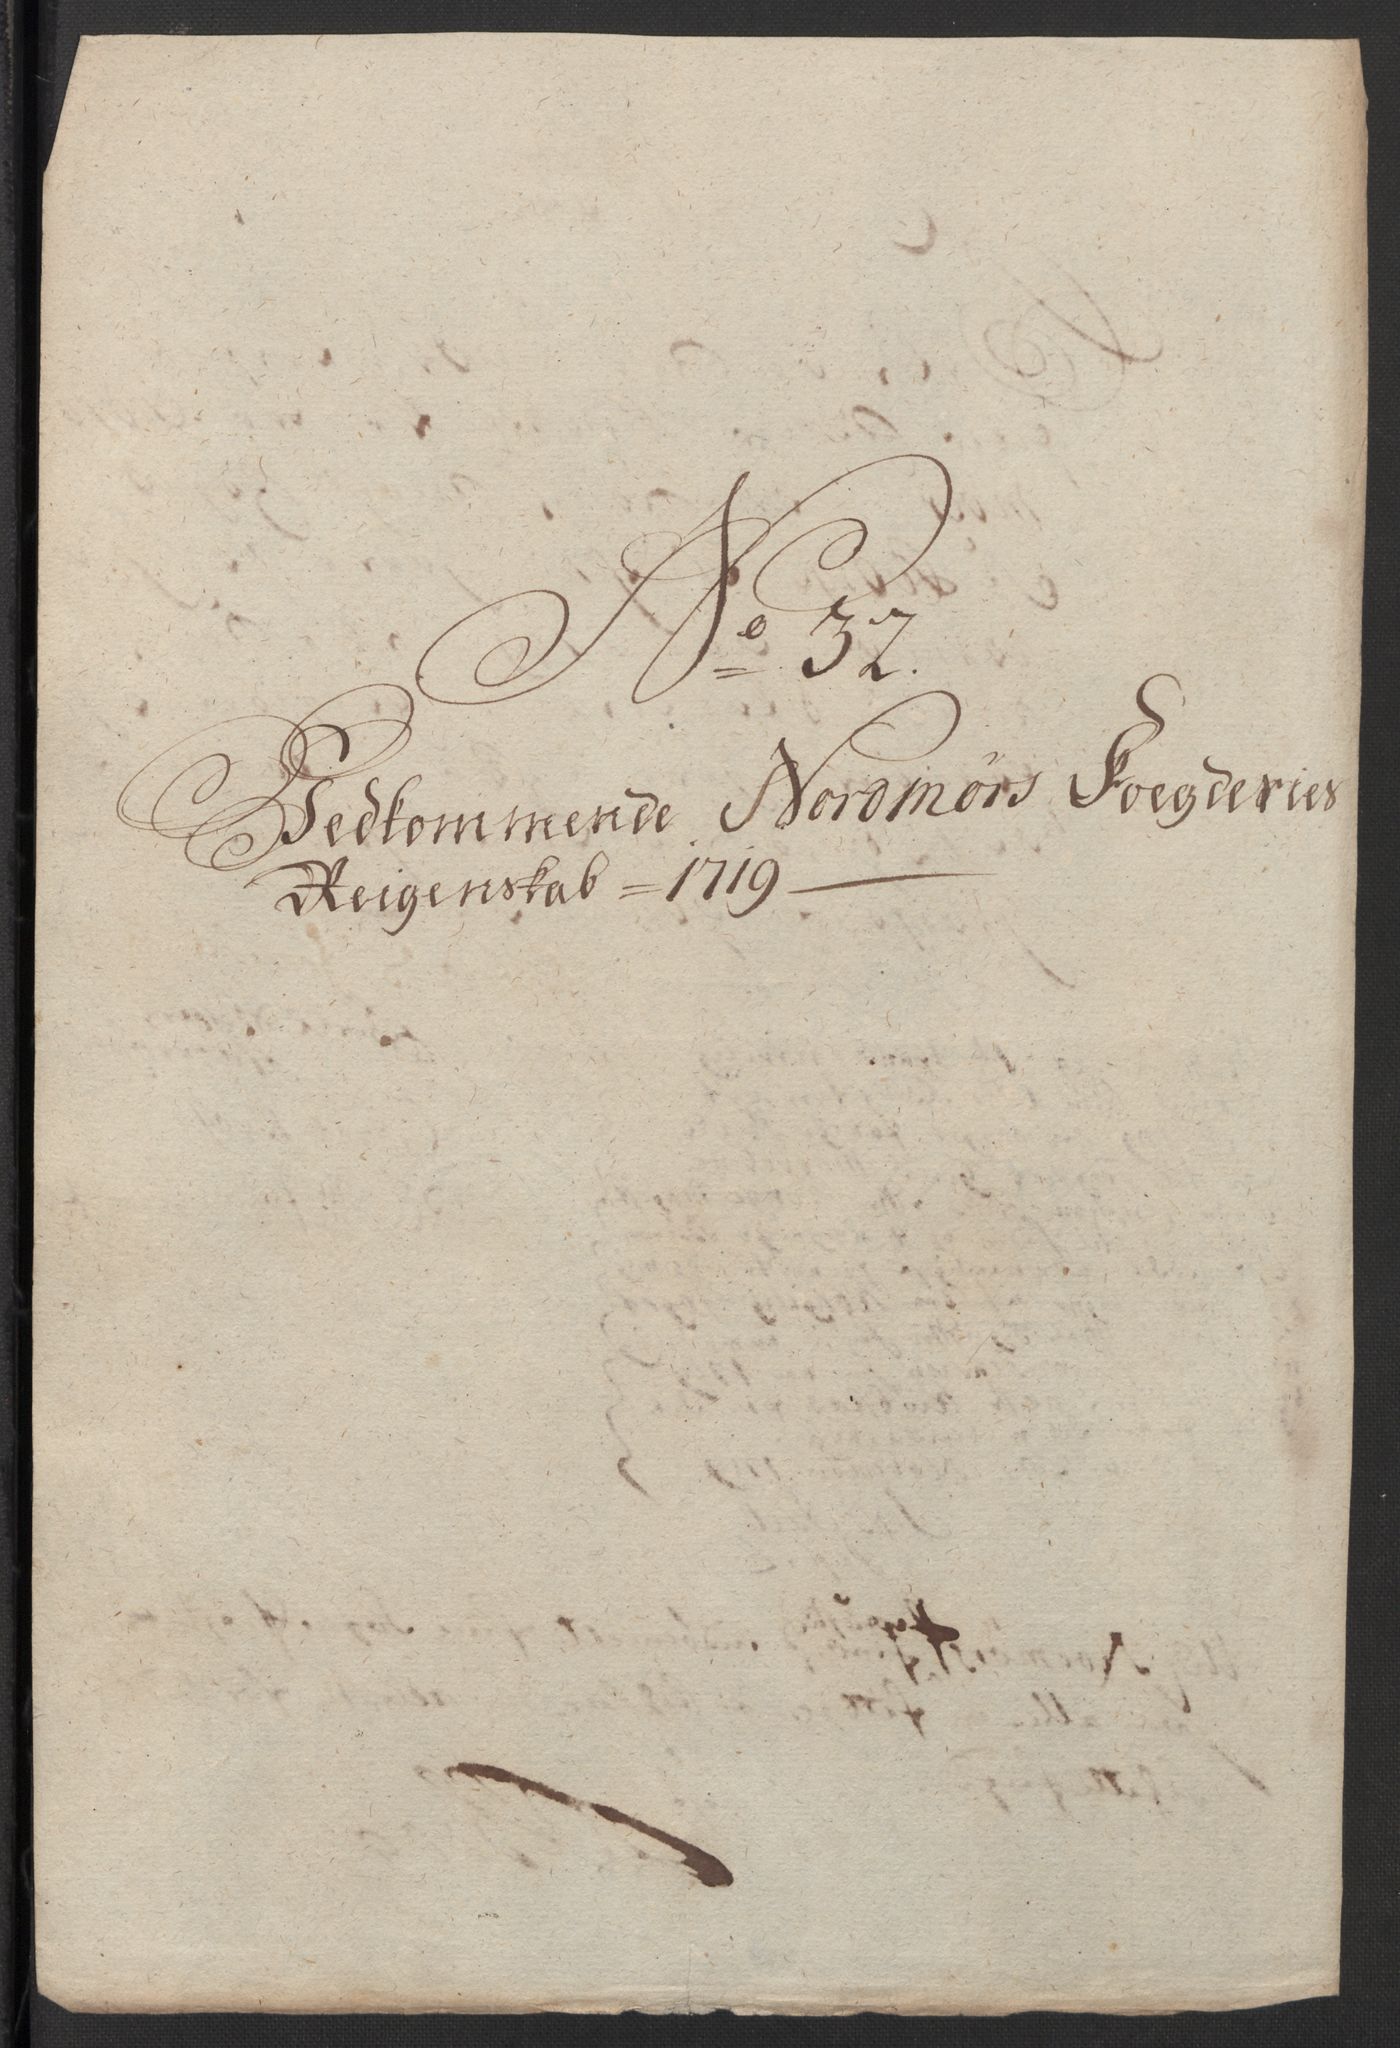 No 32.
Vedkommende Nordmörs Foegderies
Reigenskab = 1719